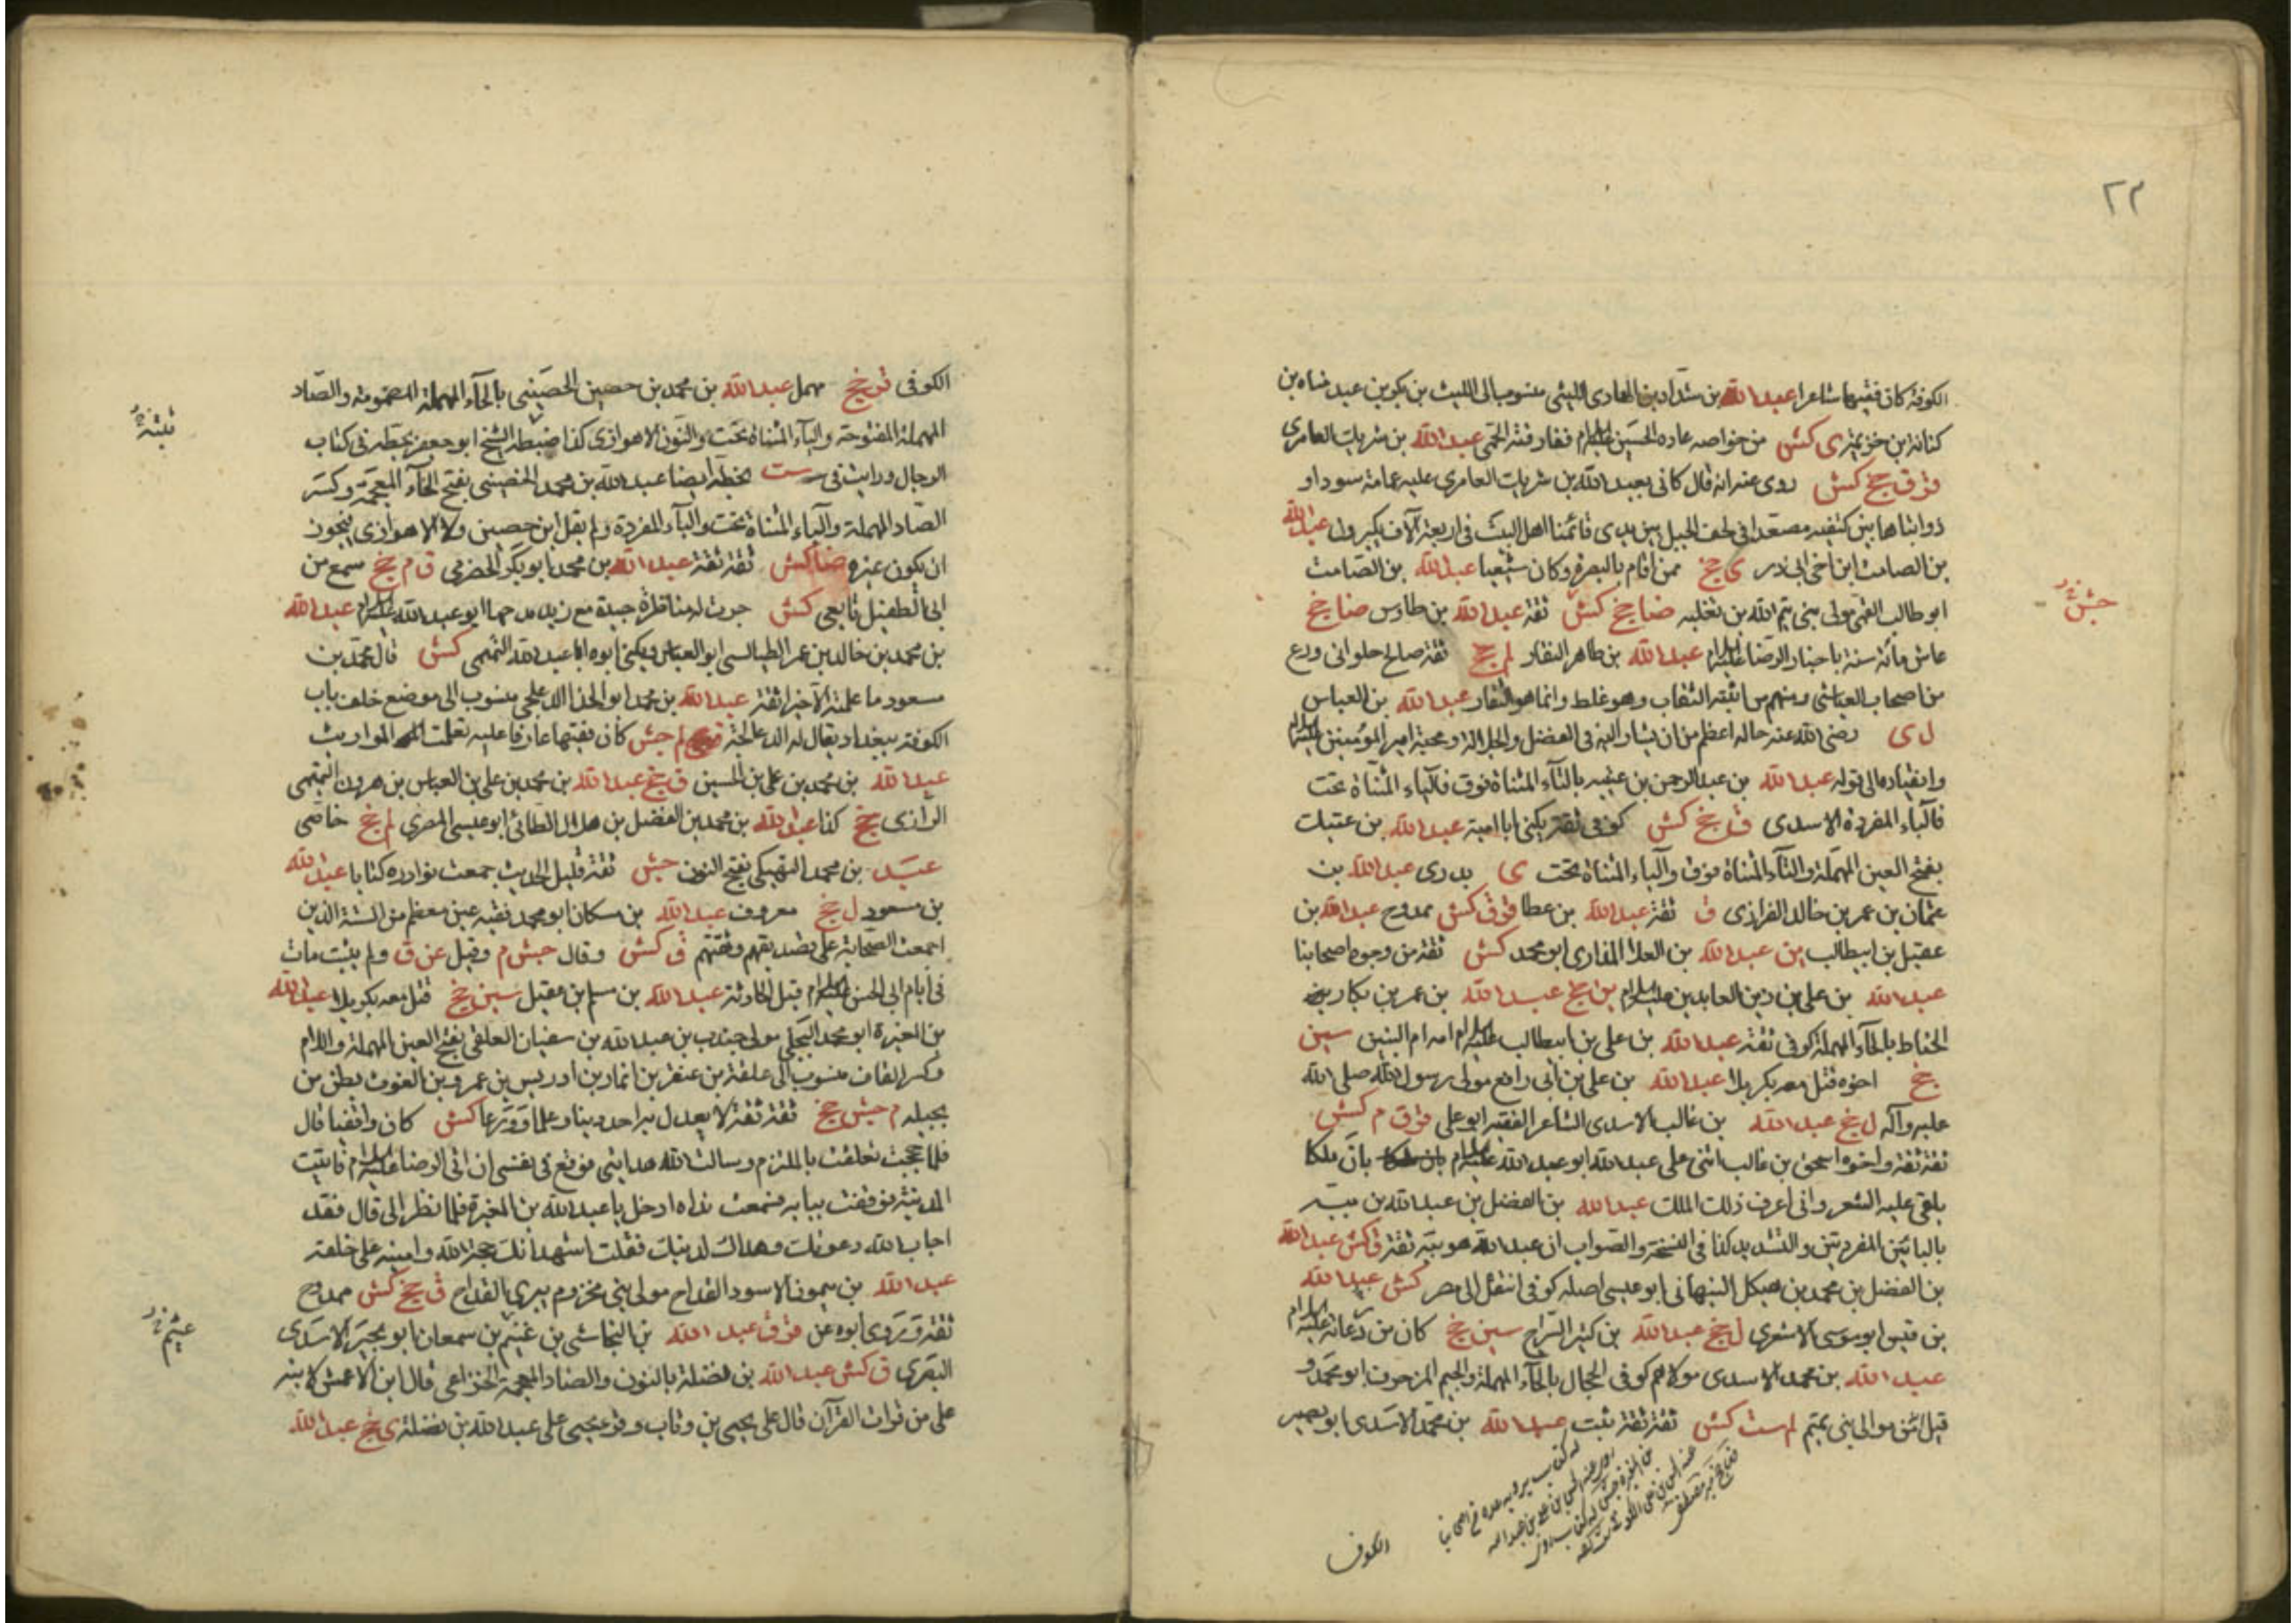 ٢٣
الكوفة كان فقيها شاعرا عبد الله بن شداد بن الهادى الليثى منسوب الى الليث بن بكر بن عبد مناه بن
كنانة ابن خزيمة ى كش من خواصه عاده الحسين عليه السلام ففارقته الحمى عبد الله بن شريك العامرى
قر ق جخ كش روى عنه انه قال كانى بعبد الله بن شريك العامرى عليه عمامة سوداء و
ذوابتاها بين كتفيه مصعدا فى لحف الجبل بين يدى قائمنا اهل البيت فى اربعة آلاف يكبرون عبد الله
بن الصامت ابن اخى ابى ذر ى جخ ممن اقام بالبصرة وكان شيعيا عبد الله بن الصامت
ابو طالب القمى مولى بنى تيم الله بن ثعلبه ضا جخ كش ثقة عبد الله بن طاوس ضا جخ
عاش مائة سنة باخبار الرضا عليه السلام عبد الله بن طاهر النقار لم جخ ثقة صالح حلوانى ورع
من اصحاب العياشى ومنهم من اثبته النقاب وهو غلط وانما هو النقار عبد الله بن العباس
ل ى رضى الله عنه حاله اعظم من ان يشار اليه فى الفضل والجلالة ومحبة امير المؤمنين عليه السلام
وانقياده الى قوله عبد الله بن عبد الرحمن بن عتيبه بالتآء المثناة فوق فالياء المثناة تحت
فالباء المفردة الاسدى ق جخ كش كوفى ثقة يكنى ابا امية عبد الله بن عتيك
بفتح العين المهملة والتآء المثناة فوق والياء المثناة تحت ى بدرى عبد الله بن
عثمان بن عمر بن خالد الفزارى ق ثقة عبد الله بن عطا قر ق كش ممدوح عبد الله بن
عقيل بن ابيطالب ين عبد الله بن العلا المذارى ابو محمد كش ثقة من وجوه اصحابنا
عبد الله بن على بن زين العابدين عليه السلام ين جخ عبد الله بن عمر بن بكار
الحناط بالحآء المهملة كوفى ثقة عبد الله بن على بن ابيطالب عليه السلام امه ام البنين سين
جخ اخوه قتل معه بكربلا عبد الله بن على بن ابى رافع مولى رسول الله صلى الله
عليه وآله ل جخ عبد الله بن غالب الاسدى الشاعر الفقيه ابو على قر ق م كش
ثقة ثقة واخوه اسحق بن غالب اثنى على عبد الله ابو عبد الله عليه السلام بان ملكا
يلقى عليه الشعر وانى اعرف ذلك الملك عبد الله بن الفضل بن عبد الله بن ببه
بالبائين المفردتين والتشديد كذا فى النسخة والصواب ان عبد الله هو ببه ثقة ق كش عبد الله
بن الفضل بن محمد بن هيكل النبهانى ابو عيسى اصله كوفى انتقل الى مصر كش عبد الله
بن قيس ابو موسى الاشعرى ل جخ عبد الله بن كثير السراج سين جخ كان من دعاته عليه السلام
عبد الله بن محمد الاسدى مولاهم كوفى الحجال بالحآء المهملة والجيم المزخرف ابو محمد و
قيل انه من موالى بنى تيم لم ست كش ثقة ثقة ثبت عبد الله بن محمد الاسدى ابو بصير
الكوفى
جش
الكوفى قر جخ مهمل عبد الله بن محمد بن حصين الحصينى بالحآء المهملة المضمومة والصاد
المهملة المفتوحة والياء المثناة تحت والنون الاهوازى كذا ضبطه الشيخ ابو جعفر بخطه فى كتاب
الرجال ورايت فى ست بخطه ايضا عبد الله بن محمد الخصيبى بفتح الخآء المعجمة وكسر
الصاد المهملة والياء المثناة تحت والبآء المفردة ولم يقل ابن حصين ولا الاهوازى فيجوز
ان يكون غيره ضا كش ثقة ثقة عبد الله بن محمد ابو بكر الحضرمى ق م جخ سمع من
ابى الطفيل تابعى كش جرت له مناظرة جيدة مع زيد مدحها ابو عبد الله عليه السلام عبد الله
بن محمد بن خالد بن عمر الطيالسى ابو العباس ويكنى ابوه ابا عبد الله التميمى كش قال محمد بن
مسعود ما علمته الا خيرا ثقة عبد الله بن محمد ابو الحذا الدعلجى منسوب الى موضع خلف باب
الكوفة ببغداد يقال له الدعالجة لم جش كان فقيها عارفا عليه تعلمت المواريث
عبد الله بن محمد بن على بن الحسين ق جخ عبد الله بن محمد بن على بن العباس بن هرون التميمى
الرازى جخ كذا عبد الله بن محمد بن الفضل بن هلال الطائى ابو عيسى المصرى لم جخ خاصى
عبيد بن محمد النهيكى بفتح النون جش ثقة قليل الحديث جمعت نوادره كتابا عبد الله
بن مسعود ل جخ معروف عبد الله بن مسكان ابو محمد فقيه عين معظم من الستة الذين
اجمعت الصحابة على تصديقهم وفقههم ق كش وقال جش م وقيل عن ق ولم يثبت مات
فى ايام ابى الحسن عليه السلام قبل الحادثة عبد الله بن مسلم بن عقيل سين جخ قتل معه بكربلا عبد الله
بن المغيرة ابو محمد البجلى مولى جندب بن عبد الله بن سفيان العلقى بفتح العين المهملة واللام
وكسر القاف منسوب الى علقة بن عبقر بن انمار بن ادريس بن عمرو بن الغوث بطن من
بجيله م جش جخ ثقة ثقة لا يعدل به احد دينا وعلما وورعا كش كان واقفيا قال
فلما حججت تعلقت بالملتزم وسالت الله هدايتى فوقع فى نفسى ان اتى الرضا عليه السلام فاتيت
المدينة فوقفت ببابه فسمعت نداه ادخل يا عبد الله بن المغيرة فلما نظر الى قال فقد
اجاب الله دعوتك وهداك لدينك فقلت اشهد انك حجة الله وامينه على خلقه
عبد الله بن ميمون الاسود القداح مولى بنى مخزوم يبرى القداح ق جخ كش ممدوح
ثقة وروى ابوه عن قر ق عبد الله بن النجاشى بن غنيم بن سمعان ابو بجير الاسدى
البصرى ق كش عبد الله بن نضلة بالنون والضاد المعجمة الخزاعى قال ابن الاعمش لابنه
على من قرات القرآن قال على يحيى بن وثاب وقرء يحيى على عبد الله بن نضلة ى جخ عبد الله